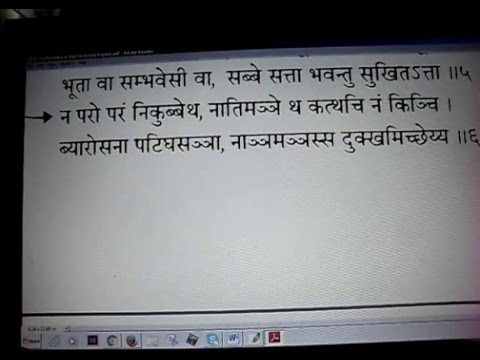 भूता वा सम्भवेसी वा, सब्बे सत्ता भवन्तु सुखितऽत्ता ॥५
न परो परं निकुब्बेथ, नातिमञ्ञे थ कत्थचि नं किञ्चि ।
ब्यारोसना पटिघसञ्ञा, नाञ्ञमञ्ञस्स दुक्खमिच्छेय्य ॥६